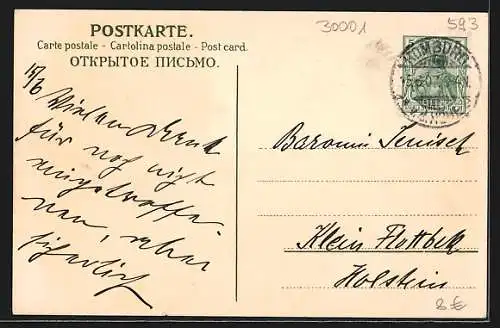 30001
593
POSTKARTE.
Carte postale - Cartolina postale - Post card.
ОТКРЫТОЕ ПИСЬМО.
HOMBURG
15/6
Vielen Dank
für noch nicht
eingetroffe-
nen, aber
Baronin Jenisch
Klein Flottbek
Holstein
8 €